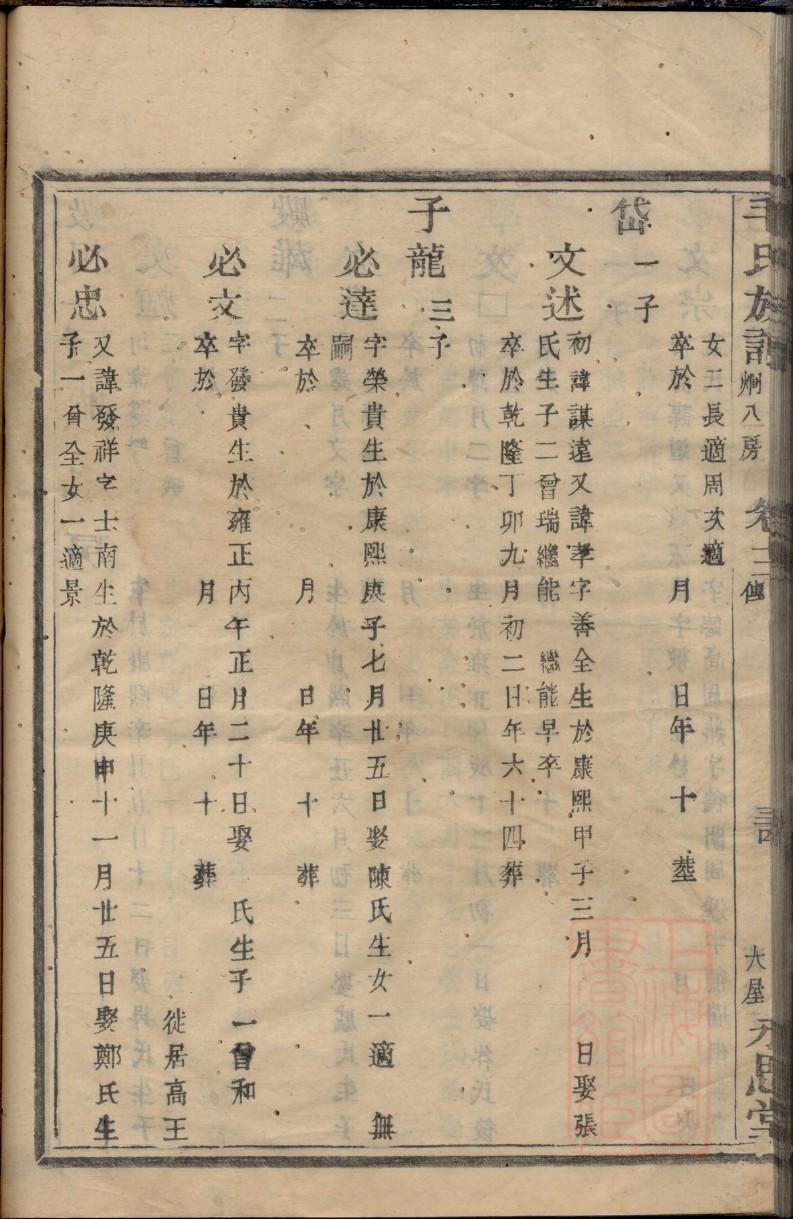 毛氏族譜 烱八房 卷十三 傳 譜 大屋 永思堂
女二長適周次適
卒於 月 日年 十 塟
岱一子
文述 初諱謀遠又諱孝字善全生於康熙甲子三月 日娶張
氏生子二曾瑞繼能 繼能早卒
卒於乾隆丁卯九月初二日年六十四葬
子龍三子
必達 字榮貴生於康熙庚子七月廿五日娶陳氏生女一適 無
嗣
卒於 月 日年 十 葬
必文 字發貴生於雍正丙午正月二十日娶 氏生子一曾和
卒於 月 日年 十 葬
徙居高王
必忠 又諱發祥字士南生於乾隆庚申十一月廿五日娶鄭氏生
子一曾全女一適景